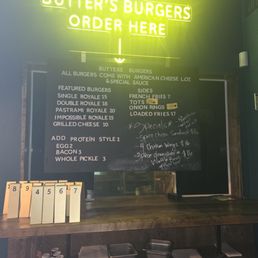 BUTTER'S BURGERS
ORDER HERE
BUTTERS BURGERS
ALL BURGERS COME WITH AMERICAN CHEESE, LOZ
& SPECIAL SAUCE
FEATURED BURGERS
SINGLE ROYALE 15
DOUBLE ROYALE 18
PASTRAMI ROYALE 20
IMPOSSIBLE ROYALE 15
GRILLED CHEESE 10
ADD PROTEIN STYLE 2
EGG 2
BACON 3
WHOLE PICKLE 3
SIDES
FRENCH FRIES 7
TOTS
ONION RINGS
LOADED FRIES 17
Specials
Chicken Sandwich
Wings
8 9 4 5 6 7